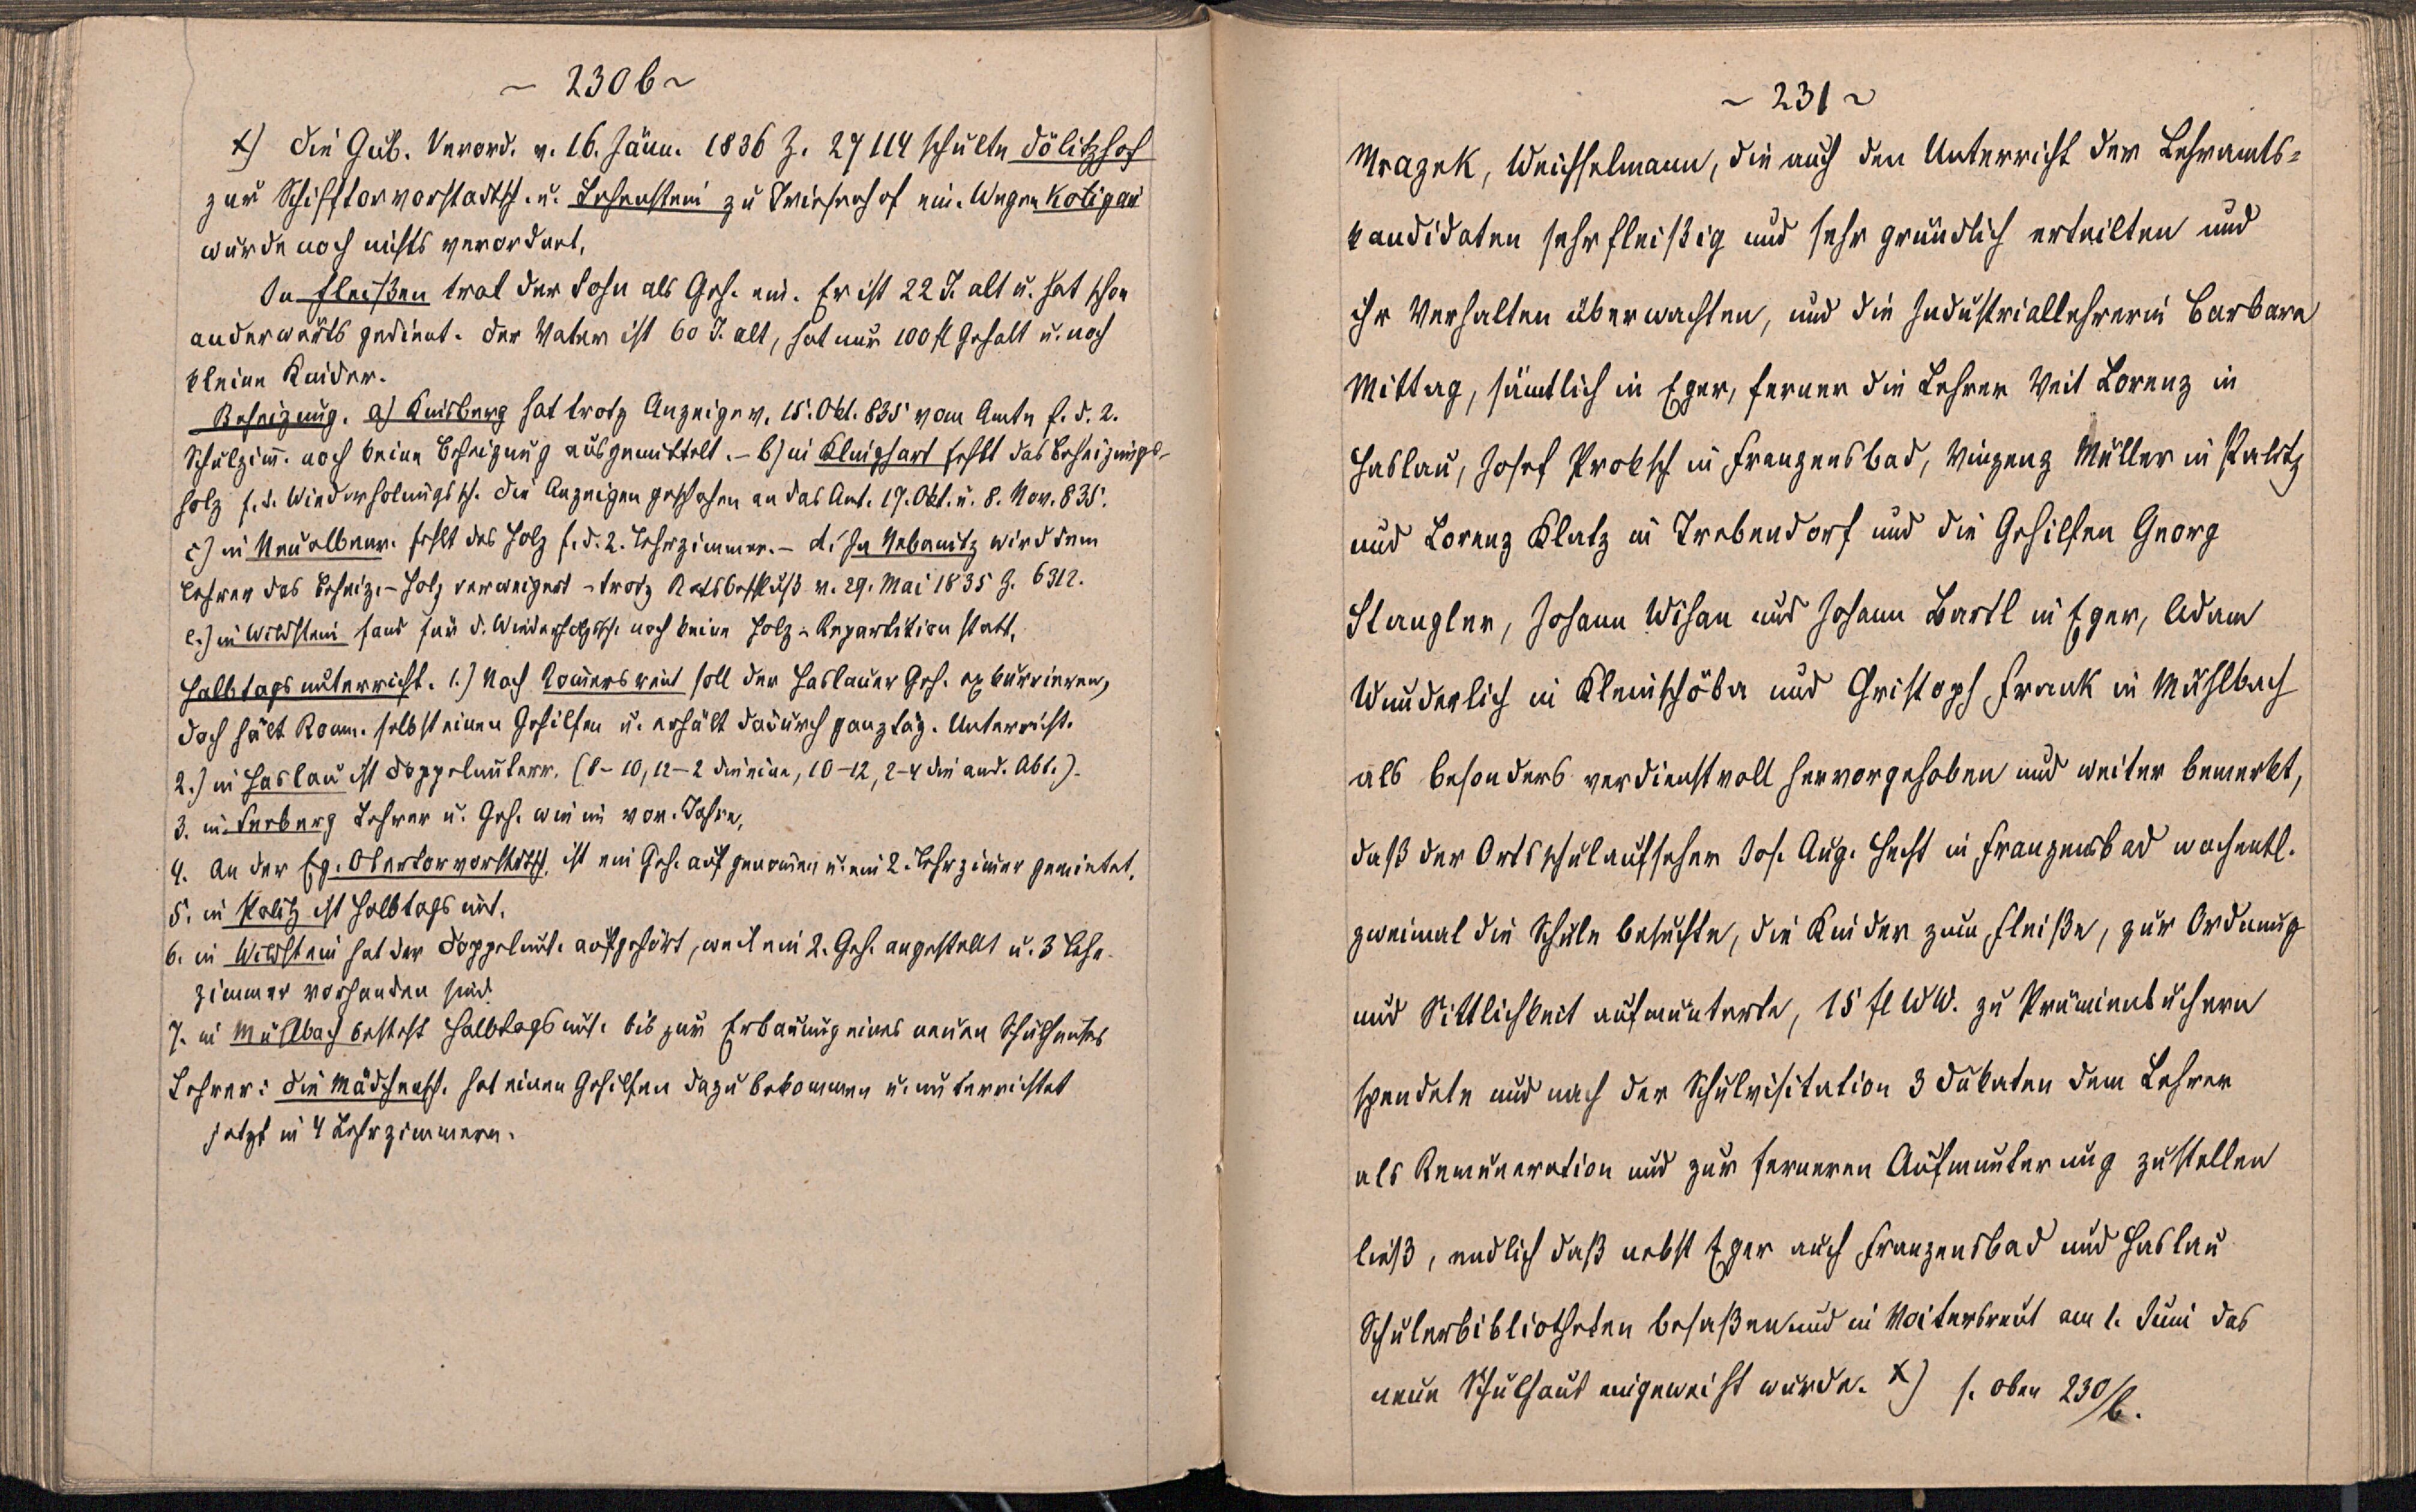 ~ 230 b ~
x) Die Gub. Verord. v. 16. Jänn. 1836 Z. 27114 schulte Dölitzhof
zur Schifftorvorstadtsch. u. Lehenstein zu Treunhof ein. Wegen Kotigau
wurde noch nichts verordnet.
In Fleißen trat der Sohn als Geh. ein. Er ist 22 J. alt u. hat schon
anderwärts gedient. Der Vater ist 60 J. alt, hat nur 100 fl Gehalt u. noch
kleine Kinder.
Beheizung. a) Kinsberg hat trotz Anzeige v. 15. Okt. 835 vom Amte f. d. 2.
Schulzim. noch keine Beheizung ausgemittelt. – b) in Klinghart fehlt das Beheizungs-
holz f. d. Wiederholungssch. Die Anzeigen geschahen an das Amt. 17. Okt. u. 8. Nov. 835.
c) in Neualbenr. fehlt das Holz f. d. 2. Lehrzimmer. – d. In Nebanitz wird dem
Lehrer das Beheiz.-Holz verweigert – trotz Ratsbeschluß v. 29. Mai 1835 Z. 6312.
e.) in Wildstein fand für d. Wiederholgssch. noch keine Holz-Repartition statt.
Halbtagsunterricht. 1.) Nach Rommersreut soll der Haslauer Geh. exkurrieren,
doch hält Romm. selbst einen Gehilfen u. erhält dadurch ganztäg. Unterricht.
2.) in Haslau ist Doppelunterr. (8–10, 12–2 die eine, 10–12, 2–4 die and. Abt.).
3. in Seeberg Lehrer u. Geh. wie im vor. Jahre,
4. An der Eg. Obertorvorstadtsch. ist ein Geh. aufgenommen u. ein 2. Lehrzimmer gemietet.
5. in Palitz ist Halbtagsunt.
6. in Wildstein hat der Doppelunt. aufgehört, weil ein 2. Geh. angestellt u. 3 Lehr-
zimmer vorhanden sind.
7. in Mühlbach besteht Halbtagsunt. bis zur Erbauung eines neuen Schulhauses
Lehrer: Die Mädchensch. hat einen Gehilfen dazu bekommen u. unterrichtet
jetzt in 4 Lehrzimmern.
~ 231 ~
Mrazek, Weichselmann, die auch den Unterricht der Lehramts=
kandidaten sehr fleißig und sehr gründlich erteilten und
ihr Verhalten überwachten, und die Industriallehrerin Barbara
Mittag, sämtlich in Eger, ferner die Lehrer Veit Lorenz in
Haslau, Josef Proksch in Franzensbad, Vinzenz Müller in Palitz
und Lorenz Klatz in Trebendorf und die Gehilfen Georg
Stangler, Johann Wihan und Johann Bartl in Eger, Adam
Wunderlich in Kleinschöba und Christoph Frank in Mühlbach
als besonders verdienstvoll hervorgehoben und weiter bemerkt,
daß der Ortsschulaufseher Jos. Aug. Hecht in Franzensbad wochentl.
zweimal die Schule besuchte, die Kinder zum Fleiße, zur Ordnung
und Sittlichkeit aufmunterte, 15 fl WW. zu Prämienbüchern
spendete und nach der Schulvisitation 3 Dukaten dem Lehrer
als Remuneration und zur ferneren Aufmunterung zustellen
ließ, endlich daß nebst Eger auch Franzensbad und Haslau
Schülerbibliotheken besaßen und in Voitersreut am 1. Juni das
neue Schulhaus eingeweiht wurde. x) s. oben 230/b.